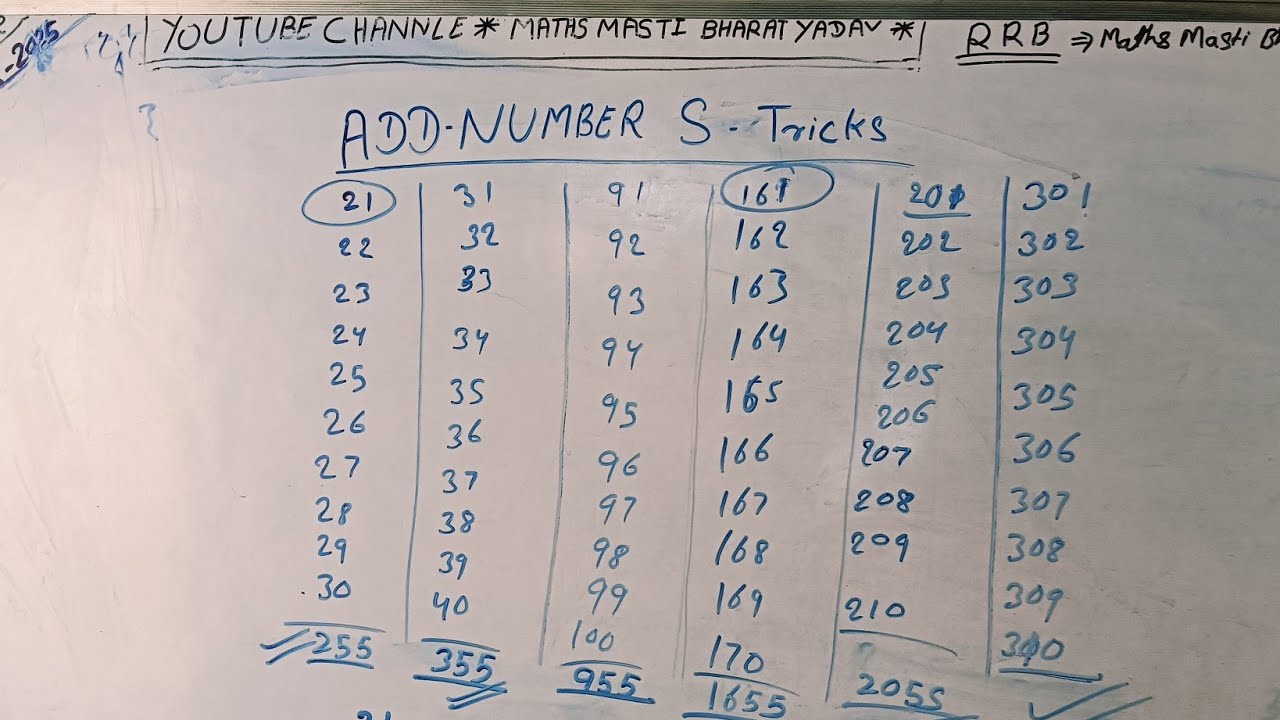 -2025
YOUTUBE CHANNLE * MATHS MASTI BHARAT YADAV *
RRB ⇒ Maths Masti B
ADD-NUMBER S - Tricks
21 31 91 161 201 301
22 32 92 162 202 302
23 33 93 163 203 303
24 34 94 164 204 304
25 35 95 165 205 305
26 36 96 166 206 306
27 37 97 167 207 307
28 38 98 168 208 308
29 39 99 169 209 309
30 40 100 170 210 310
255 355 955 1655 2055